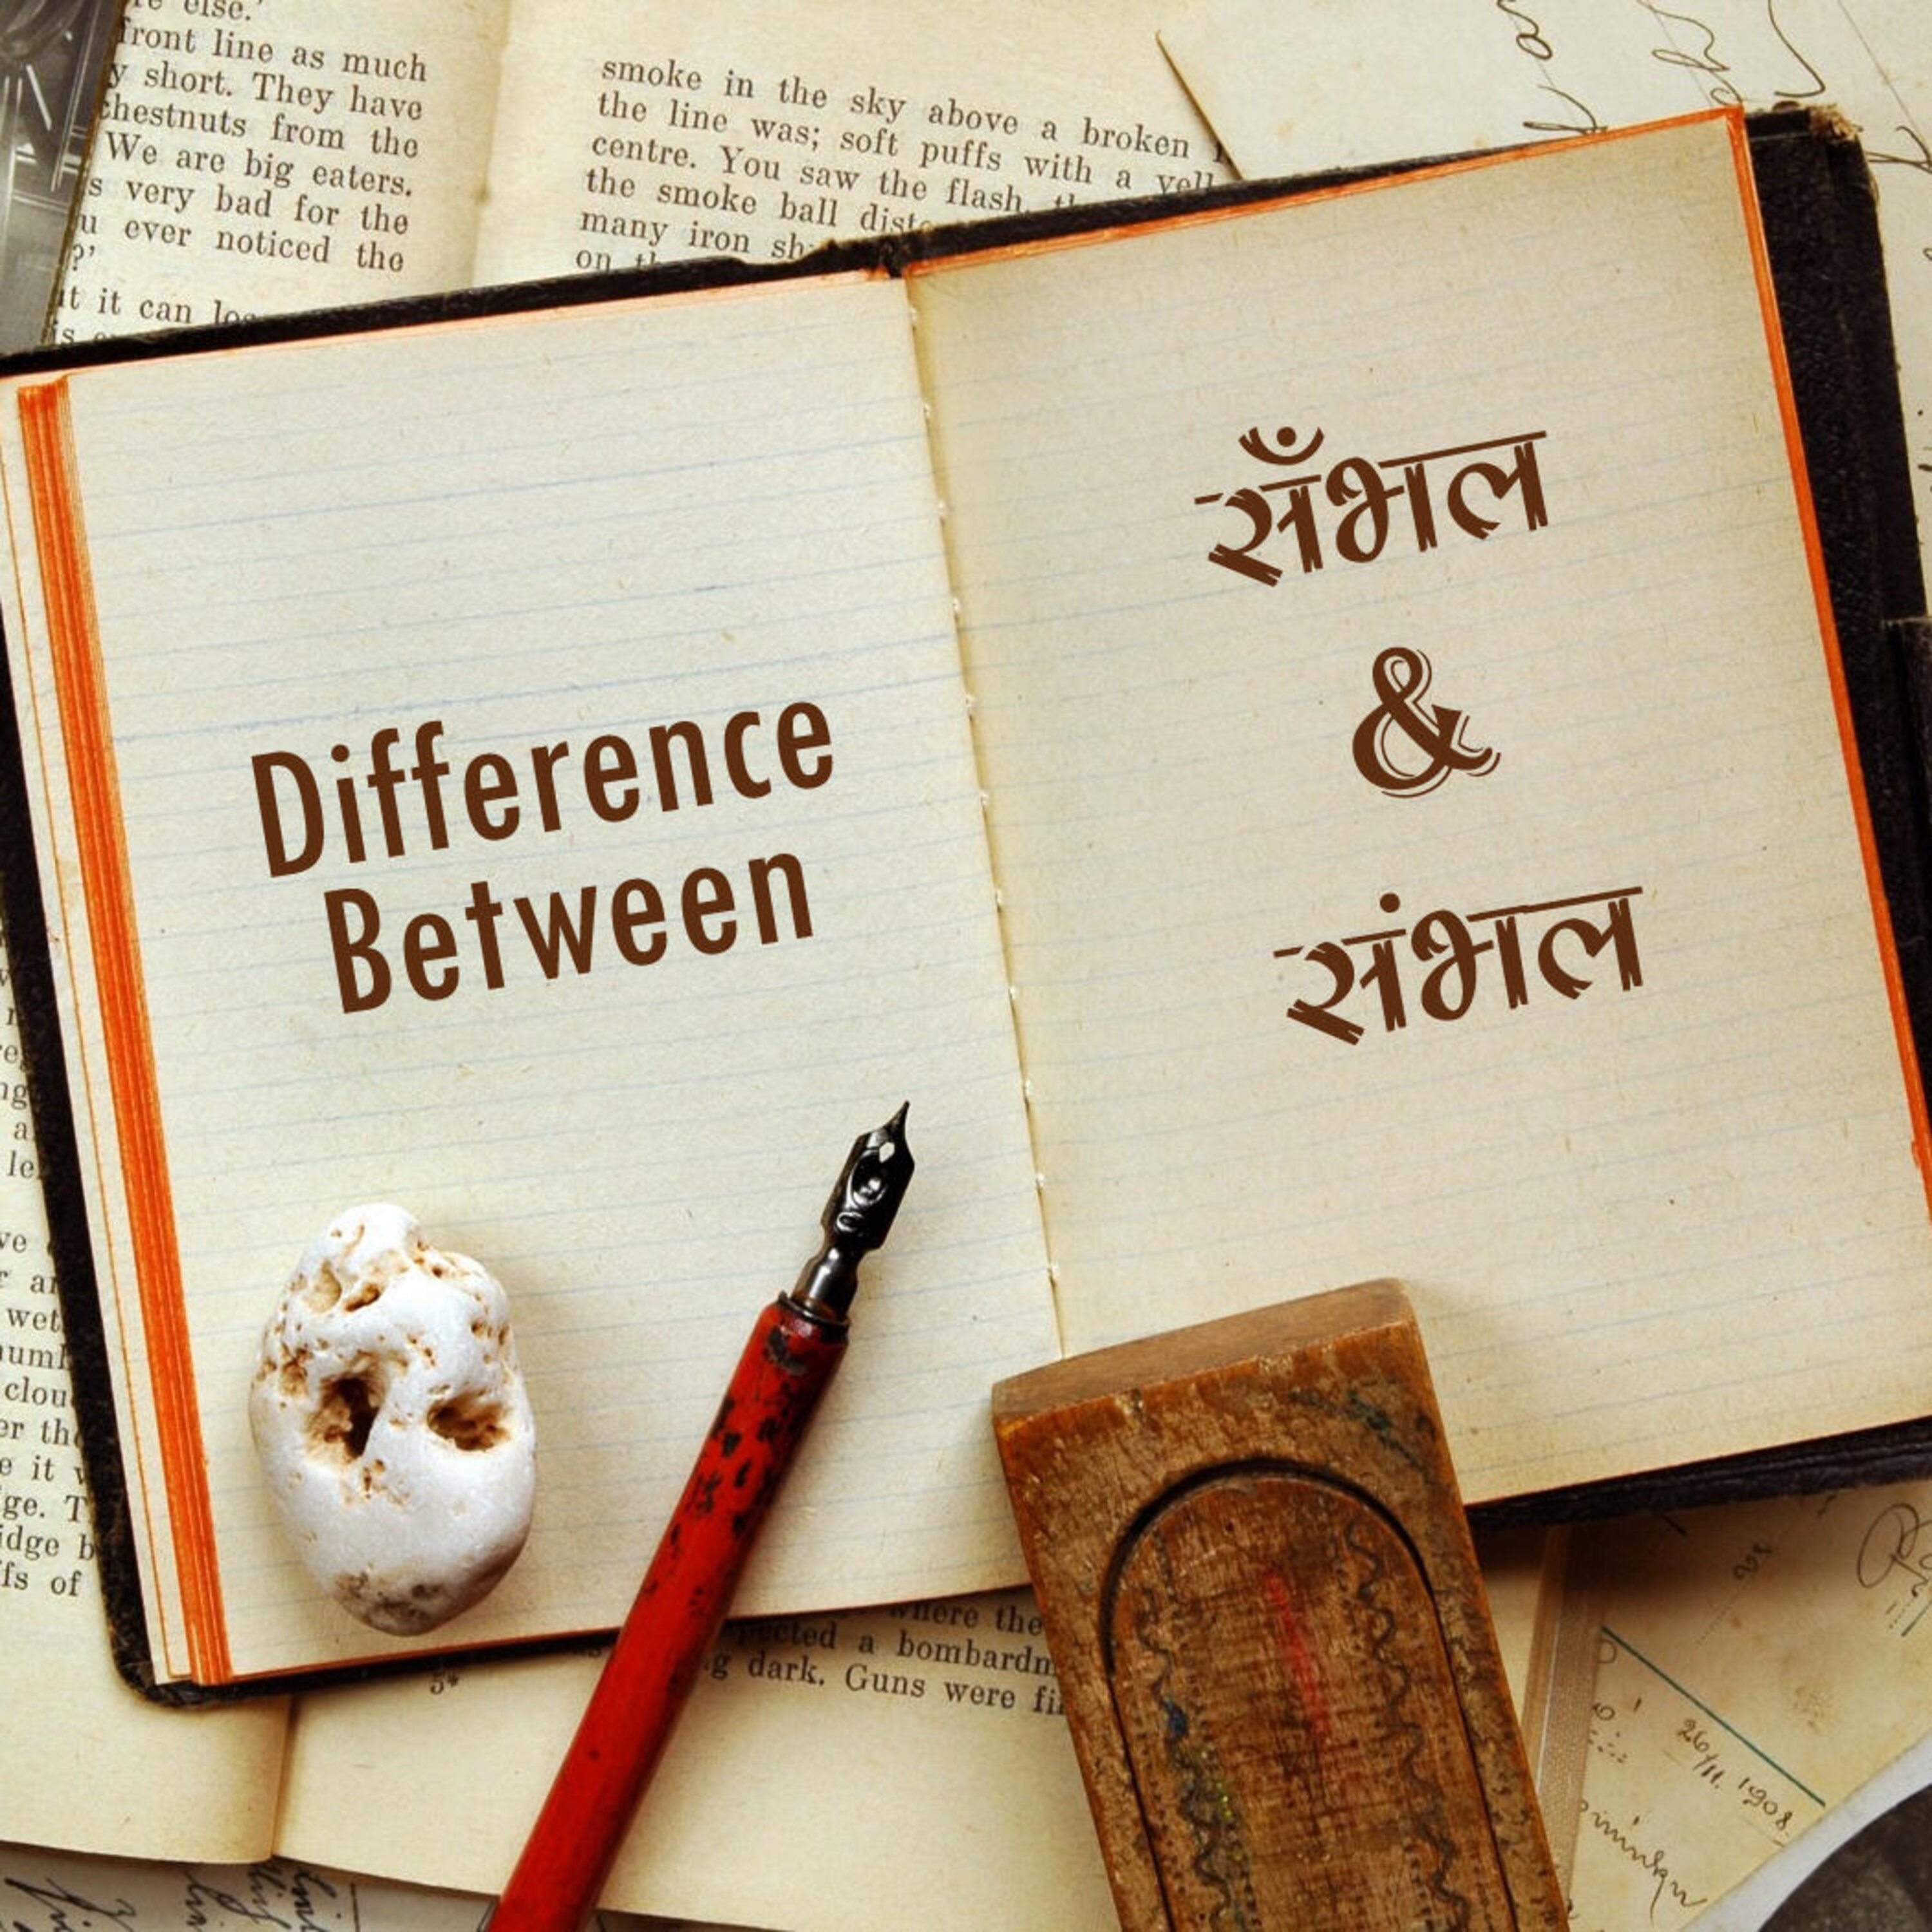 re else.'
front line as much
y short. They have
chestnuts from the
We are big eaters.
s very bad for the
u ever noticed the
?'
it it can
smoke in the sky above a broken
the line was; soft puffs with a yell
centre. You saw the flash,
the smoke ball
many iron
on
Difference
Between
सँभल
&
संभल
le
ve
wet
clou
er the
e it
ge. T
idge b
fs of
where the
a bombardm
g dark. Guns were fi
5*
26/11. 1908.